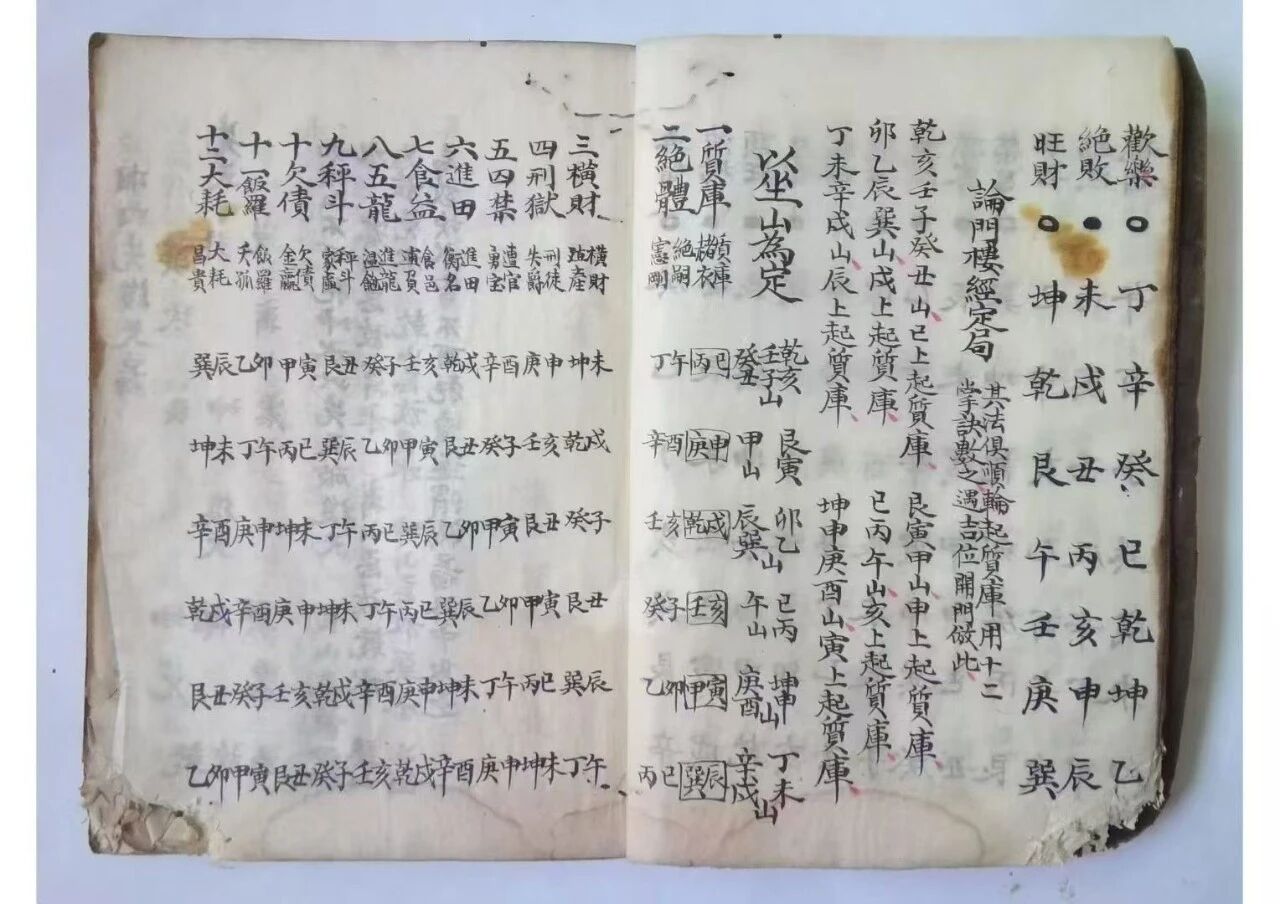 歡樂 ○ 丁 辛 癸 巳 乾 坤 乙
絶敗 ● 未 戌 丑 丙 亥 申 辰
旺財 ○ 坤 乾 艮 午 壬 庚 巽
論門樓經定局
其法俱順輪起質庫用十二
掌訣數之遇吉位開門倣此
乾亥壬子癸丑山巳上起質庫、艮寅甲山申上起質庫、
卯乙辰巽山戌上起質庫、巳丙午山亥上起質庫、
丁未辛戌山辰上起質庫、坤申庚酉山寅上起質庫、
以坐山為定 乾亥壬子山癸丑 艮寅甲山 卯乙山辰巽 巳丙午山 坤申山庚酉 丁未辛戌山
一質庫 質庫楮衣 巳丙 申庚 戌乾 亥壬 寅甲 辰巽
二絶體 絶嗣憲剛 午丁 酉辛 亥壬 子癸 卯乙 巳丙
三橫財 橫財產 未坤 戌乾 子癸 丑艮 辰巽 午丁
四刑獄 刑徒失爵 申庚 亥壬 丑艮 寅甲 巳丙 未坤
五四禁 遭官 酉辛 子癸 寅甲 卯乙 午丁 申庚
六進田 進田衡名 戌乾 丑艮 卯乙 辰巽 未坤 酉辛
七食益 食邑 亥壬 寅甲 辰巽 巳丙 申庚 戌乾
八五龍 進龍 子癸 卯乙 巳丙 午丁 酉辛 亥壬
九秤斗 秤斗 丑艮 辰巽 午丁 未坤 戌乾 子癸
十欠債 欠債金 寅甲 巳丙 未坤 申庚 亥壬 丑艮
十一飯羅 飯羅孤 卯乙 午丁 申庚 酉辛 子癸 寅甲
十二大耗 大耗昌貴 辰巽 未坤 酉辛 戌乾 丑艮 卯乙